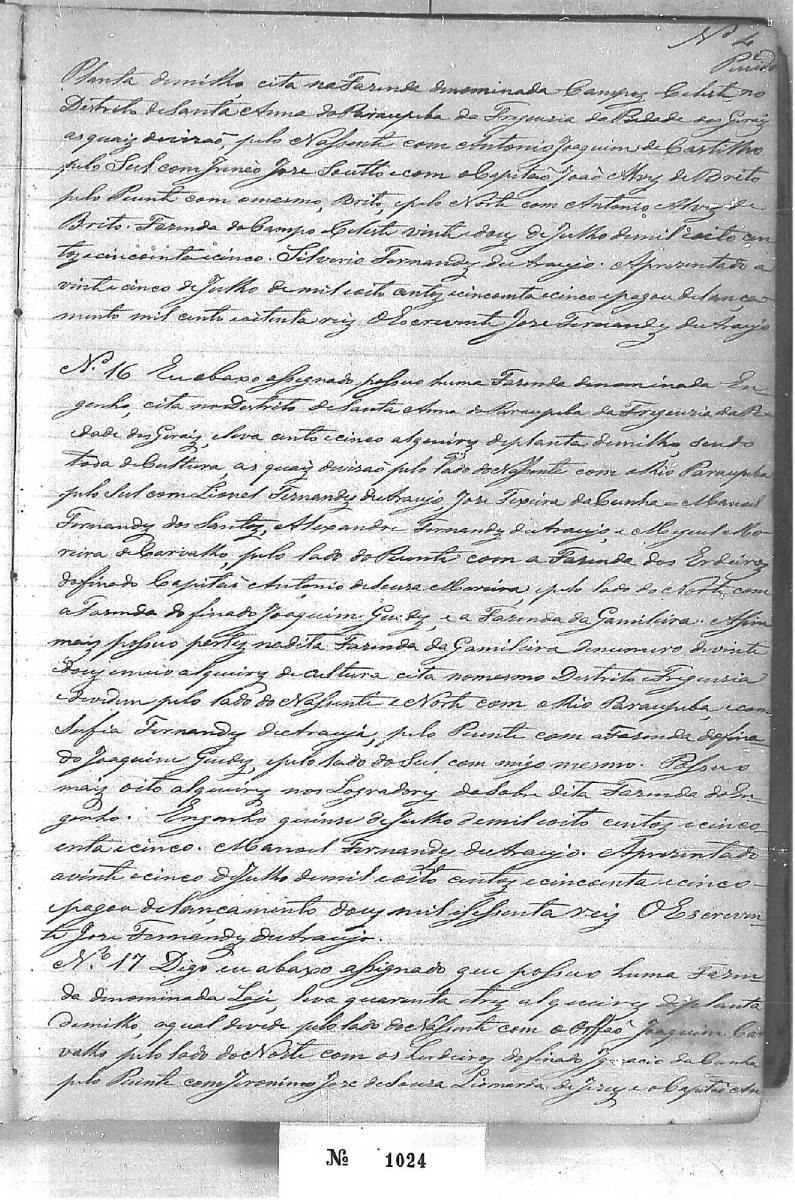 Nº 4
Planta de milho cita na Fazenda denominada Campo Celeste no
Distrito de Santa Anna do Paraupeba da Freguezia da Piedade dos Geraiz
as quaiz devizaõ pelo Nassente com Antonio Joaquim de Castilho
pelo Sul com Ireneo Joze Soutto e com o Capitaõ Joaõ Alvez de Brito
pelo Puente com o mesmo, Brito, e pelo Norte com Antonio Alvez de
Brito. Fazenda do Campo Celeste vinte e douz de Julho de mil e oito cen
toz e cincointa e cinco. Silverio Fernandz de Araujo. Aprezentado a
vinte e cinco de Julho de mil e oito centoz e cincoenta e cinco e pagou de lança-
mento mil cento e oitenta reiz O Escrevente Joze Fernandz de Araujo
Nº 16 Eu abaxo assignado possuo huma Fazenda denominada En-
genho, cita no Distrito de Santa Anna do Paraupeba da Freguzia da Pi-
edade dos Geraiz, leva cento e cinco alqueirz de planta de milho, sendo
toda de Cultura as quaiz devizaõ pelo lado do Nassente com o Rio Paraupeba
pelo Sul com Lionel Fernandz de Araujo, Joze Texeira da Cunha - Manoel
Fernandz dos Santoz, Alexandre Fernandz de Araujo, e Miguel Mo-
reira de Carvalho, pelo lado do Puente com a Fazenda dos Erdeiroz
do finado Capitaõ Antonio de Souza Moreira, e pelo lado do Norte com
a Fazenda do finado Joaquim Guedz, e a Fazenda da Gamileira. Assim
maiz possuo partez na dita Fazenda da Gamileira de numero de vinte
douz e meio alqueirz de cultura cita no mesmo Distrito e Freguezia
e devidem pelo lado do Nassente e Norte com o Rio Paraupeba, e com
Sufia Fernandz de Arauja, pelo Puente com a Fazenda do fina
do Joaquim Guedz, e pelo lado do Sul com migo mesmo. Possuo
maiz oito alqueirz nos Logradorz da Sobre dita Fazenda do En-
genho. Engenho quinze de Julho de mil e oito centoz e cinco
enta e cinco. Manoel Fernandz de Araujo. Aprezentado
a vinte e cinco de Julho de mil e oito centoz e cincoenta e cinco-
e pagou de lancamento douz mil e sessenta reiz O Escreven-
te Joze Fernandz de Araujo.
Nº 17 Digo eu abaxo assignado que possuo huma Fazen-
da denominada Laje, leva quarenta e trez alqueirz de planta
de milho, a qual devide pelo lado do Nassente com o Joaquim Car
valho pelo lado do Norte com os Erdeiroz do finado Ignacio da Cunha
pelo Puente com Jironimo Joze de Souza Lionardo de e o Capitaõ An
Nº 1024